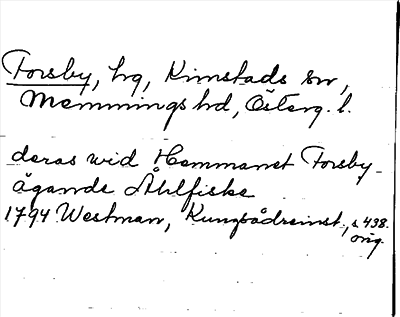 Forsby, hg, Kimstads sn,
Memmings hd, Österg. l.
deras wid Hemmanet Forsby
ägande Åhlfiske
1794 Westman, Kungsådreinst., s 438.
orig.